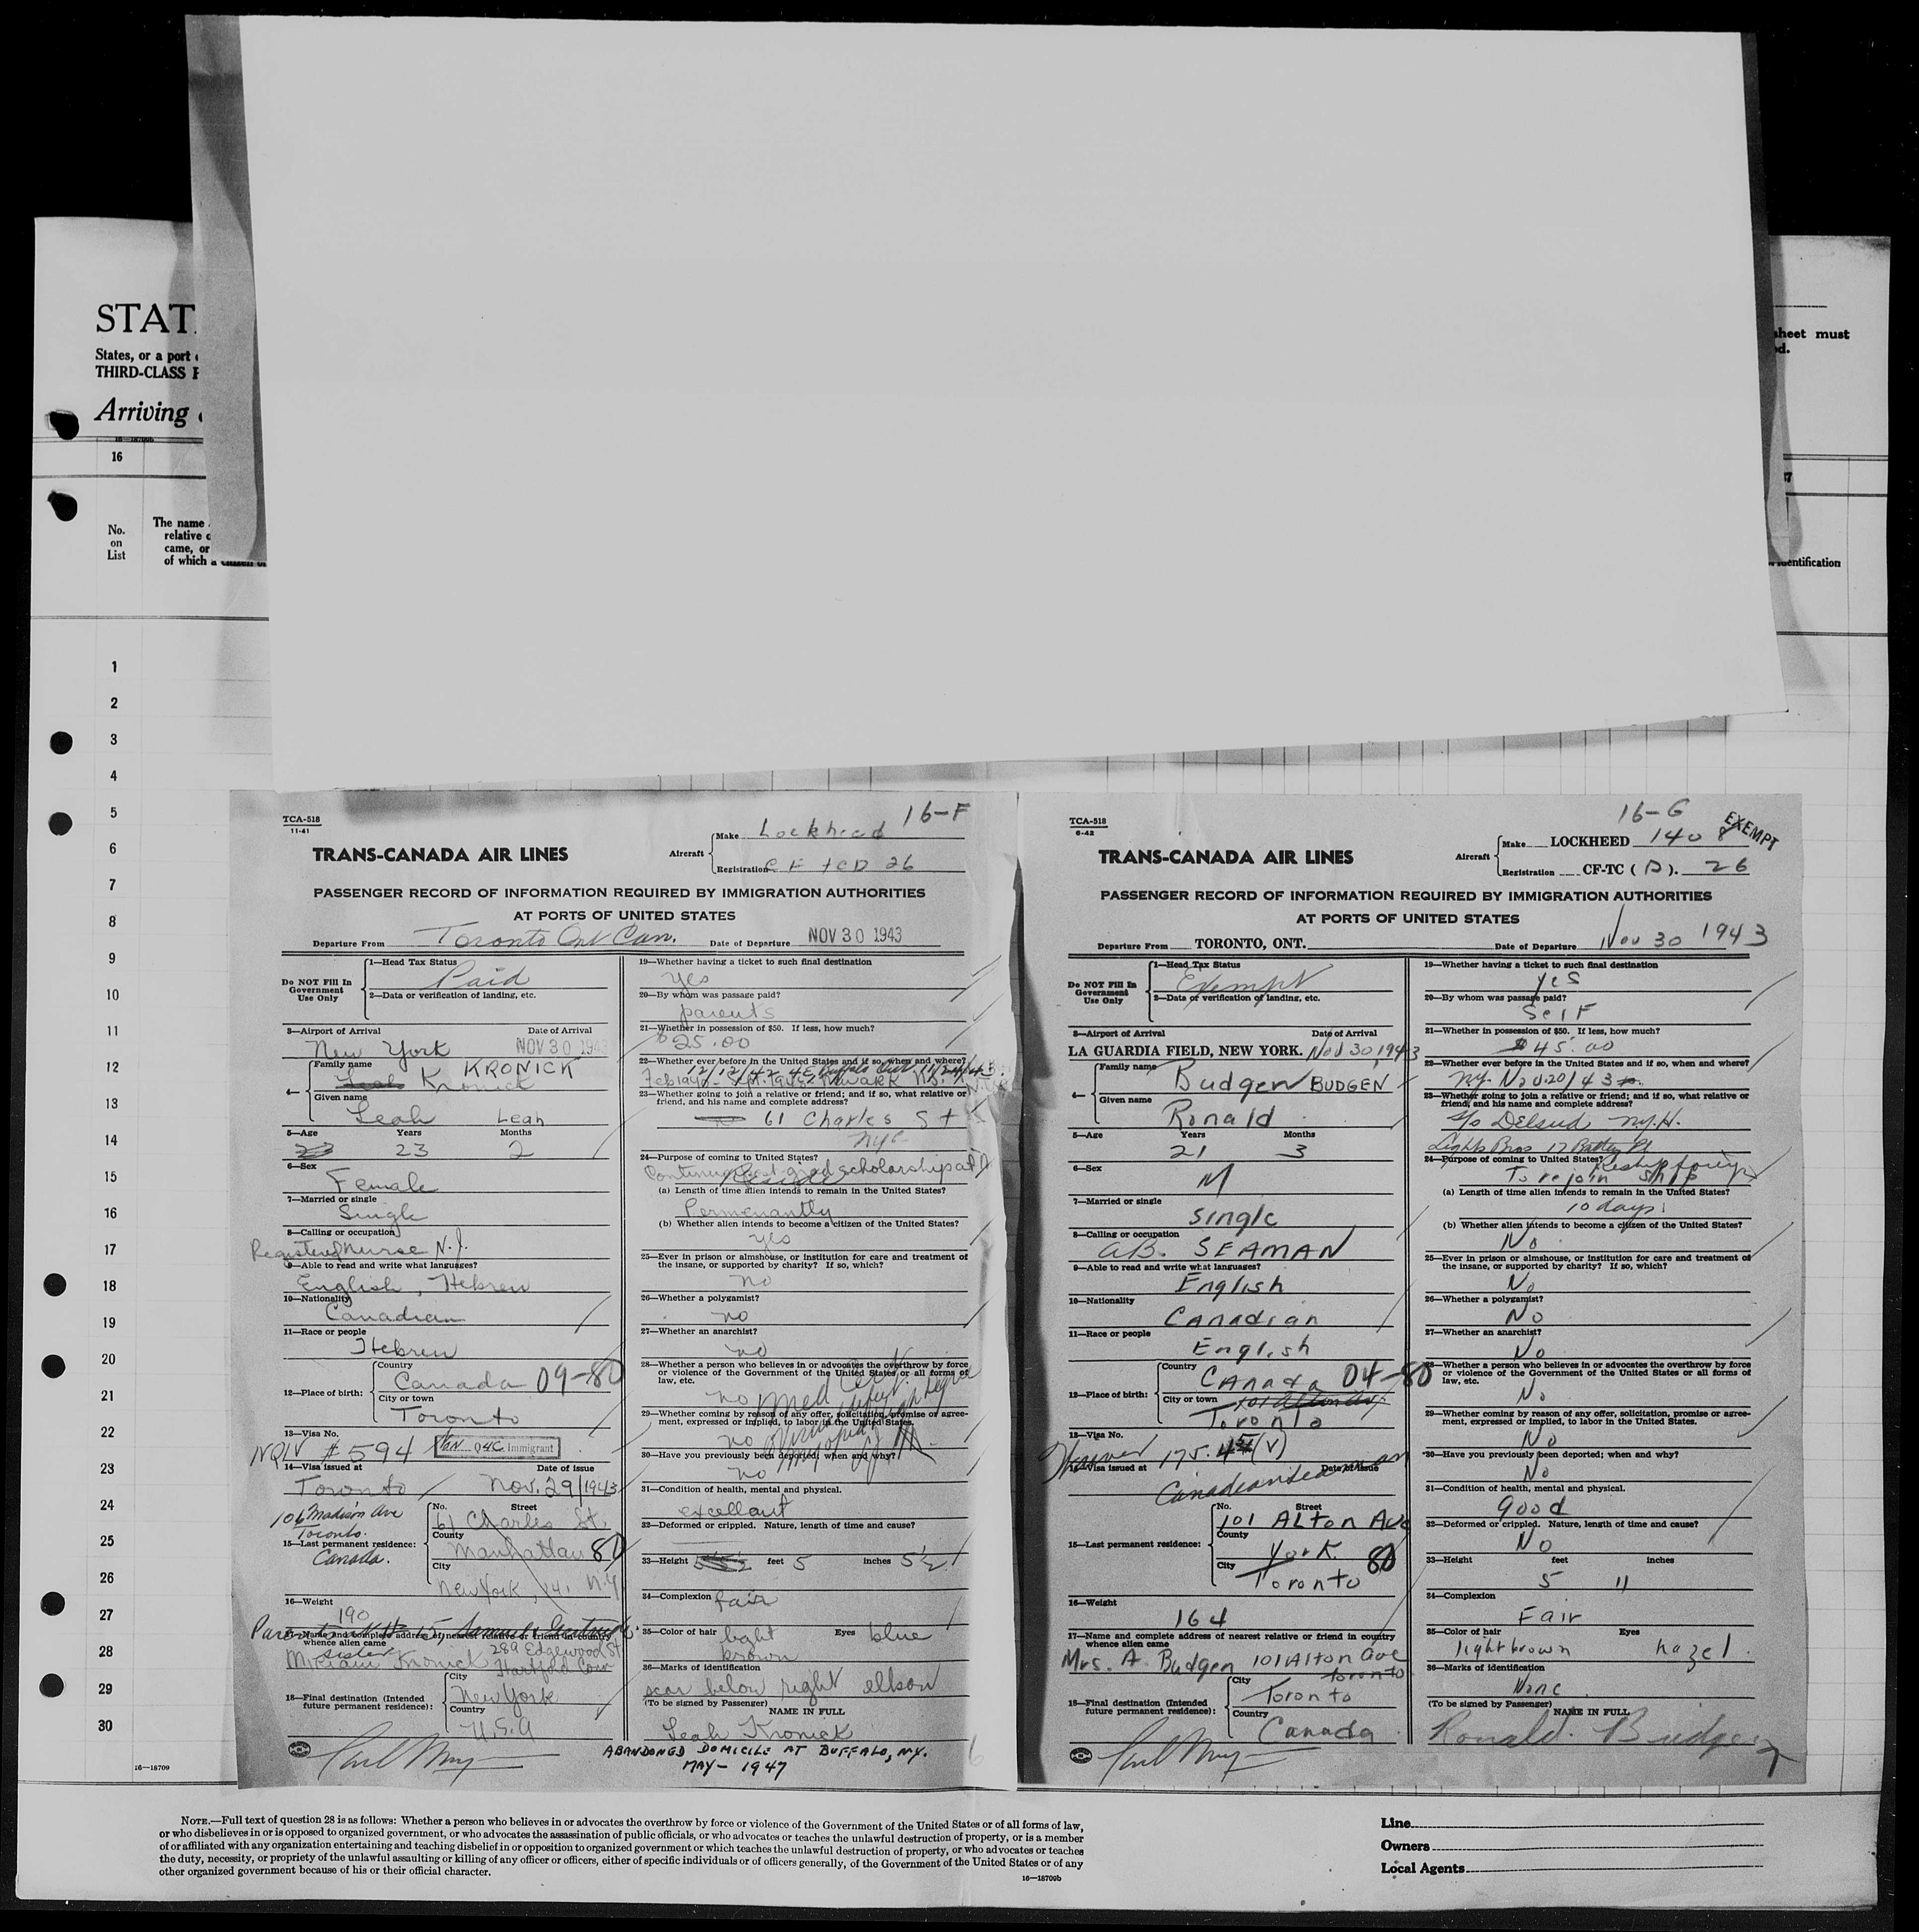 STAT
States, or a port
THIRD-CLASS
Arriving
16—18709b
16
No.
on
List
The name
relative
came, or
of which a citizen or
sheet must
identification
1
2
3
4
5
6
7
8
9
10
11
12
13
14
15
16
17
18
19
20
21
22
23
24
25
26
27
28
29
30
16—18709
TCA-518
11-41
16-F
Aircraft
Make Lockheed
Registration CF TCD 26
TRANS-CANADA AIR LINES
PASSENGER RECORD OF INFORMATION REQUIRED BY IMMIGRATION AUTHORITIES
AT PORTS OF UNITED STATES
Departure From Toronto Ont Can. Date of Departure NOV 30 1943
Do NOT Fill In
Government
Use Only
1—Head Tax Status
Paid
2—Data or verification of landing, etc.
3—Airport of Arrival Date of Arrival
New York NOV 30 1943
4—
Family name KRONICK
Leah Kronick
Given name
Leah Leah
5—Age Years Months
23 23 2
6—Sex
Female
7—Married or single
Single
8—Calling or occupation
Registered Nurse N.J.
9—Able to read and write what languages?
English, Hebrew
10—Nationality
Canadian
11—Race or people
Hebrew
12—Place of birth:
Country
Canada 09-80
City or town
Toronto
13—Visa No.
NQIV #594 Immigrant
14—Visa issued at Date of issue
Toronto Nov. 29/1943
106 Madison Ave
Toronto.
Canada.
15—Last permanent residence:
No. Street
61 Charles St.
County
Manhattan 80
City
New York, 14, N.Y.
16—Weight
190
Parents Samuel & Gertrude
17—Name and complete address of nearest relative or friend in country
whence alien came
sister 289 Edgewood St
Miriam Kronick Hartford Conn
18—Final destination (Intended
future permanent residence):
City
New York
Country
U.S.A
19—Whether having a ticket to such final destination
yes
20—By whom was passage paid?
parents
21—Whether in possession of $50. If less, how much?
$25.00
22—Whether ever before in the United States and if so, when and where?
12/12/42 4E Buffalo
Newark N.J.
23—Whether going to join a relative or friend; and if so, what relative or
friend, and his name and complete address?
61 Charles St
NYC
24—Purpose of coming to United States?
Continue post grad scholarship at
Reside
(a) Length of time alien intends to remain in the United States?
Permenantly
(b) Whether alien intends to become a citizen of the United States?
yes
25—Ever in prison or almshouse, or institution for care and treatment of
the insane, or supported by charity? If so, which?
no
26—Whether a polygamist?
no
27—Whether an anarchist?
no
28—Whether a person who believes in or advocates the overthrow by force
or violence of the Government of the United States or all forms of
law, etc.
no Med Cert.
29—Whether coming by reason of any offer, solicitation, promise or agree-
ment, expressed or implied, to labor in the United States.
no
30—Have you previously been deported; when and why?
no
31—Condition of health, mental and physical.
excellant
32—Deformed or crippled. Nature, length of time and cause?
33—Height feet 5 inches 5½
34—Complexion fair
35—Color of hair light Eyes blue
brown
36—Marks of identification
scar below right elbow
(To be signed by Passenger)
NAME IN FULL
Leah Kronick
ABANDONED DOMICILE AT BUFFALO, N.Y.
MAY - 1947
TCA-518
6-42
16-G
EXEMPT
Aircraft
Make LOCKHEED 1408
Registration CF-TC (D). 26
TRANS-CANADA AIR LINES
PASSENGER RECORD OF INFORMATION REQUIRED BY IMMIGRATION AUTHORITIES
AT PORTS OF UNITED STATES
Departure From TORONTO, ONT. Date of Departure Nov 30 1943
Do NOT Fill In
Government
Use Only
1—Head Tax Status
Exempt
2—Data or verification of landing, etc.
3—Airport of Arrival Date of Arrival
LA GUARDIA FIELD, NEW YORK. Nov 30, 1943
4—
Family name
Budgen BUDGEN
Given name
Ronald
5—Age Years Months
21 3
6—Sex
M
7—Married or single
single
8—Calling or occupation
A.B. SEAMAN
9—Able to read and write what languages?
English
10—Nationality
Canadian
11—Race or people
English
12—Place of birth:
Country
Canada 04-80
City or town
Toronto
13—Visa No.
175.45 (V)
14—Visa issued at Date of issue
Canadian Seaman
15—Last permanent residence:
No. Street
101 Alton Ave
County
York 80
City
Toronto
16—Weight
164
17—Name and complete address of nearest relative or friend in country
whence alien came
Mrs. A Budgen 101 Alton Ave
Toronto
18—Final destination (Intended
future permanent residence):
City
Toronto
Country
Canada
19—Whether having a ticket to such final destination
yes
20—By whom was passage paid?
Self
21—Whether in possession of $50. If less, how much?
$45.00
22—Whether ever before in the United States and if so, when and where?
NY. Nov 20/43
23—Whether going to join a relative or friend; and if so, what relative or
friend, and his name and complete address?
S/S Delsud N.Y.H.
Bros 17 Battery Pl
24—Purpose of coming to United States?
To rejoin ship
(a) Length of time alien intends to remain in the United States?
10 days
(b) Whether alien intends to become a citizen of the United States?
No
25—Ever in prison or almshouse, or institution for care and treatment of
the insane, or supported by charity? If so, which?
No
26—Whether a polygamist?
No
27—Whether an anarchist?
No
28—Whether a person who believes in or advocates the overthrow by force
or violence of the Government of the United States or all forms of
law, etc.
No
29—Whether coming by reason of any offer, solicitation, promise or agree-
ment, expressed or implied, to labor in the United States.
No
30—Have you previously been deported; when and why?
No
31—Condition of health, mental and physical.
good
32—Deformed or crippled. Nature, length of time and cause?
No
33—Height feet inches
5 11
34—Complexion
Fair
35—Color of hair Eyes
light brown hazel
36—Marks of identification
None
(To be signed by Passenger)
NAME IN FULL
Ronald Budgen
NOTE.—Full text of question 28 is as follows: Whether a person who believes in or advocates the overthrow by force or violence of the Government of the United States or of all forms of law,
or who disbelieves in or is opposed to organized government, or who advocates the assassination of public officials, or who advocates or teaches the unlawful destruction of property, or is a member
of or affiliated with any organization entertaining and teaching disbelief in or opposition to organized government or which teaches the unlawful destruction of property, or who advocates or teaches
the duty, necessity, or propriety of the unlawful assaulting or killing of any officer or officers, either of specific individuals or of officers generally, of the Government of the United States or of any
other organized government because of his or their official character.
16—18709b
Line
Owners
Local Agents